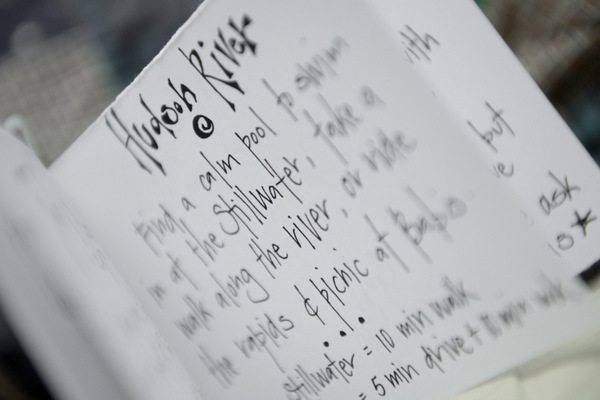 Hudson River
Find a calm pool to swim
in at the Stillwater, take a
walk along the river, or ride
the rapids & picnic at Babs
Stillwater = 10 min walk
= 5 min drive + 10 min walk
with
but
ask
is